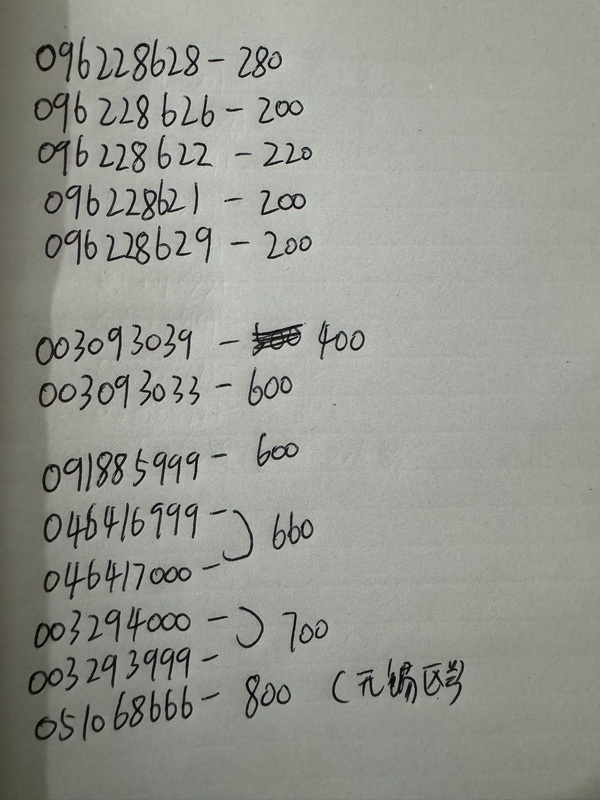 096228628 - 280
096228626 - 200
096228622 - 220
096228621 - 200
096228629 - 200
003093039 - 400
003093033 - 600
091885999 - 600
046416999 - 660
046417000 -
003294000 - 700
003293999 -
051068666 - 800 (无锡区号)